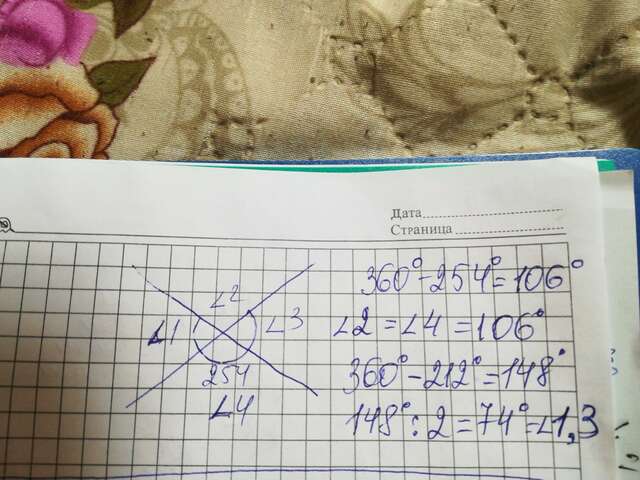 Дата
Страница
∠2
∠1
∠3
254
∠4
360°-254°=106°
∠2=∠4=106°
360°-212°=148°
148°:2=74°=∠1,3